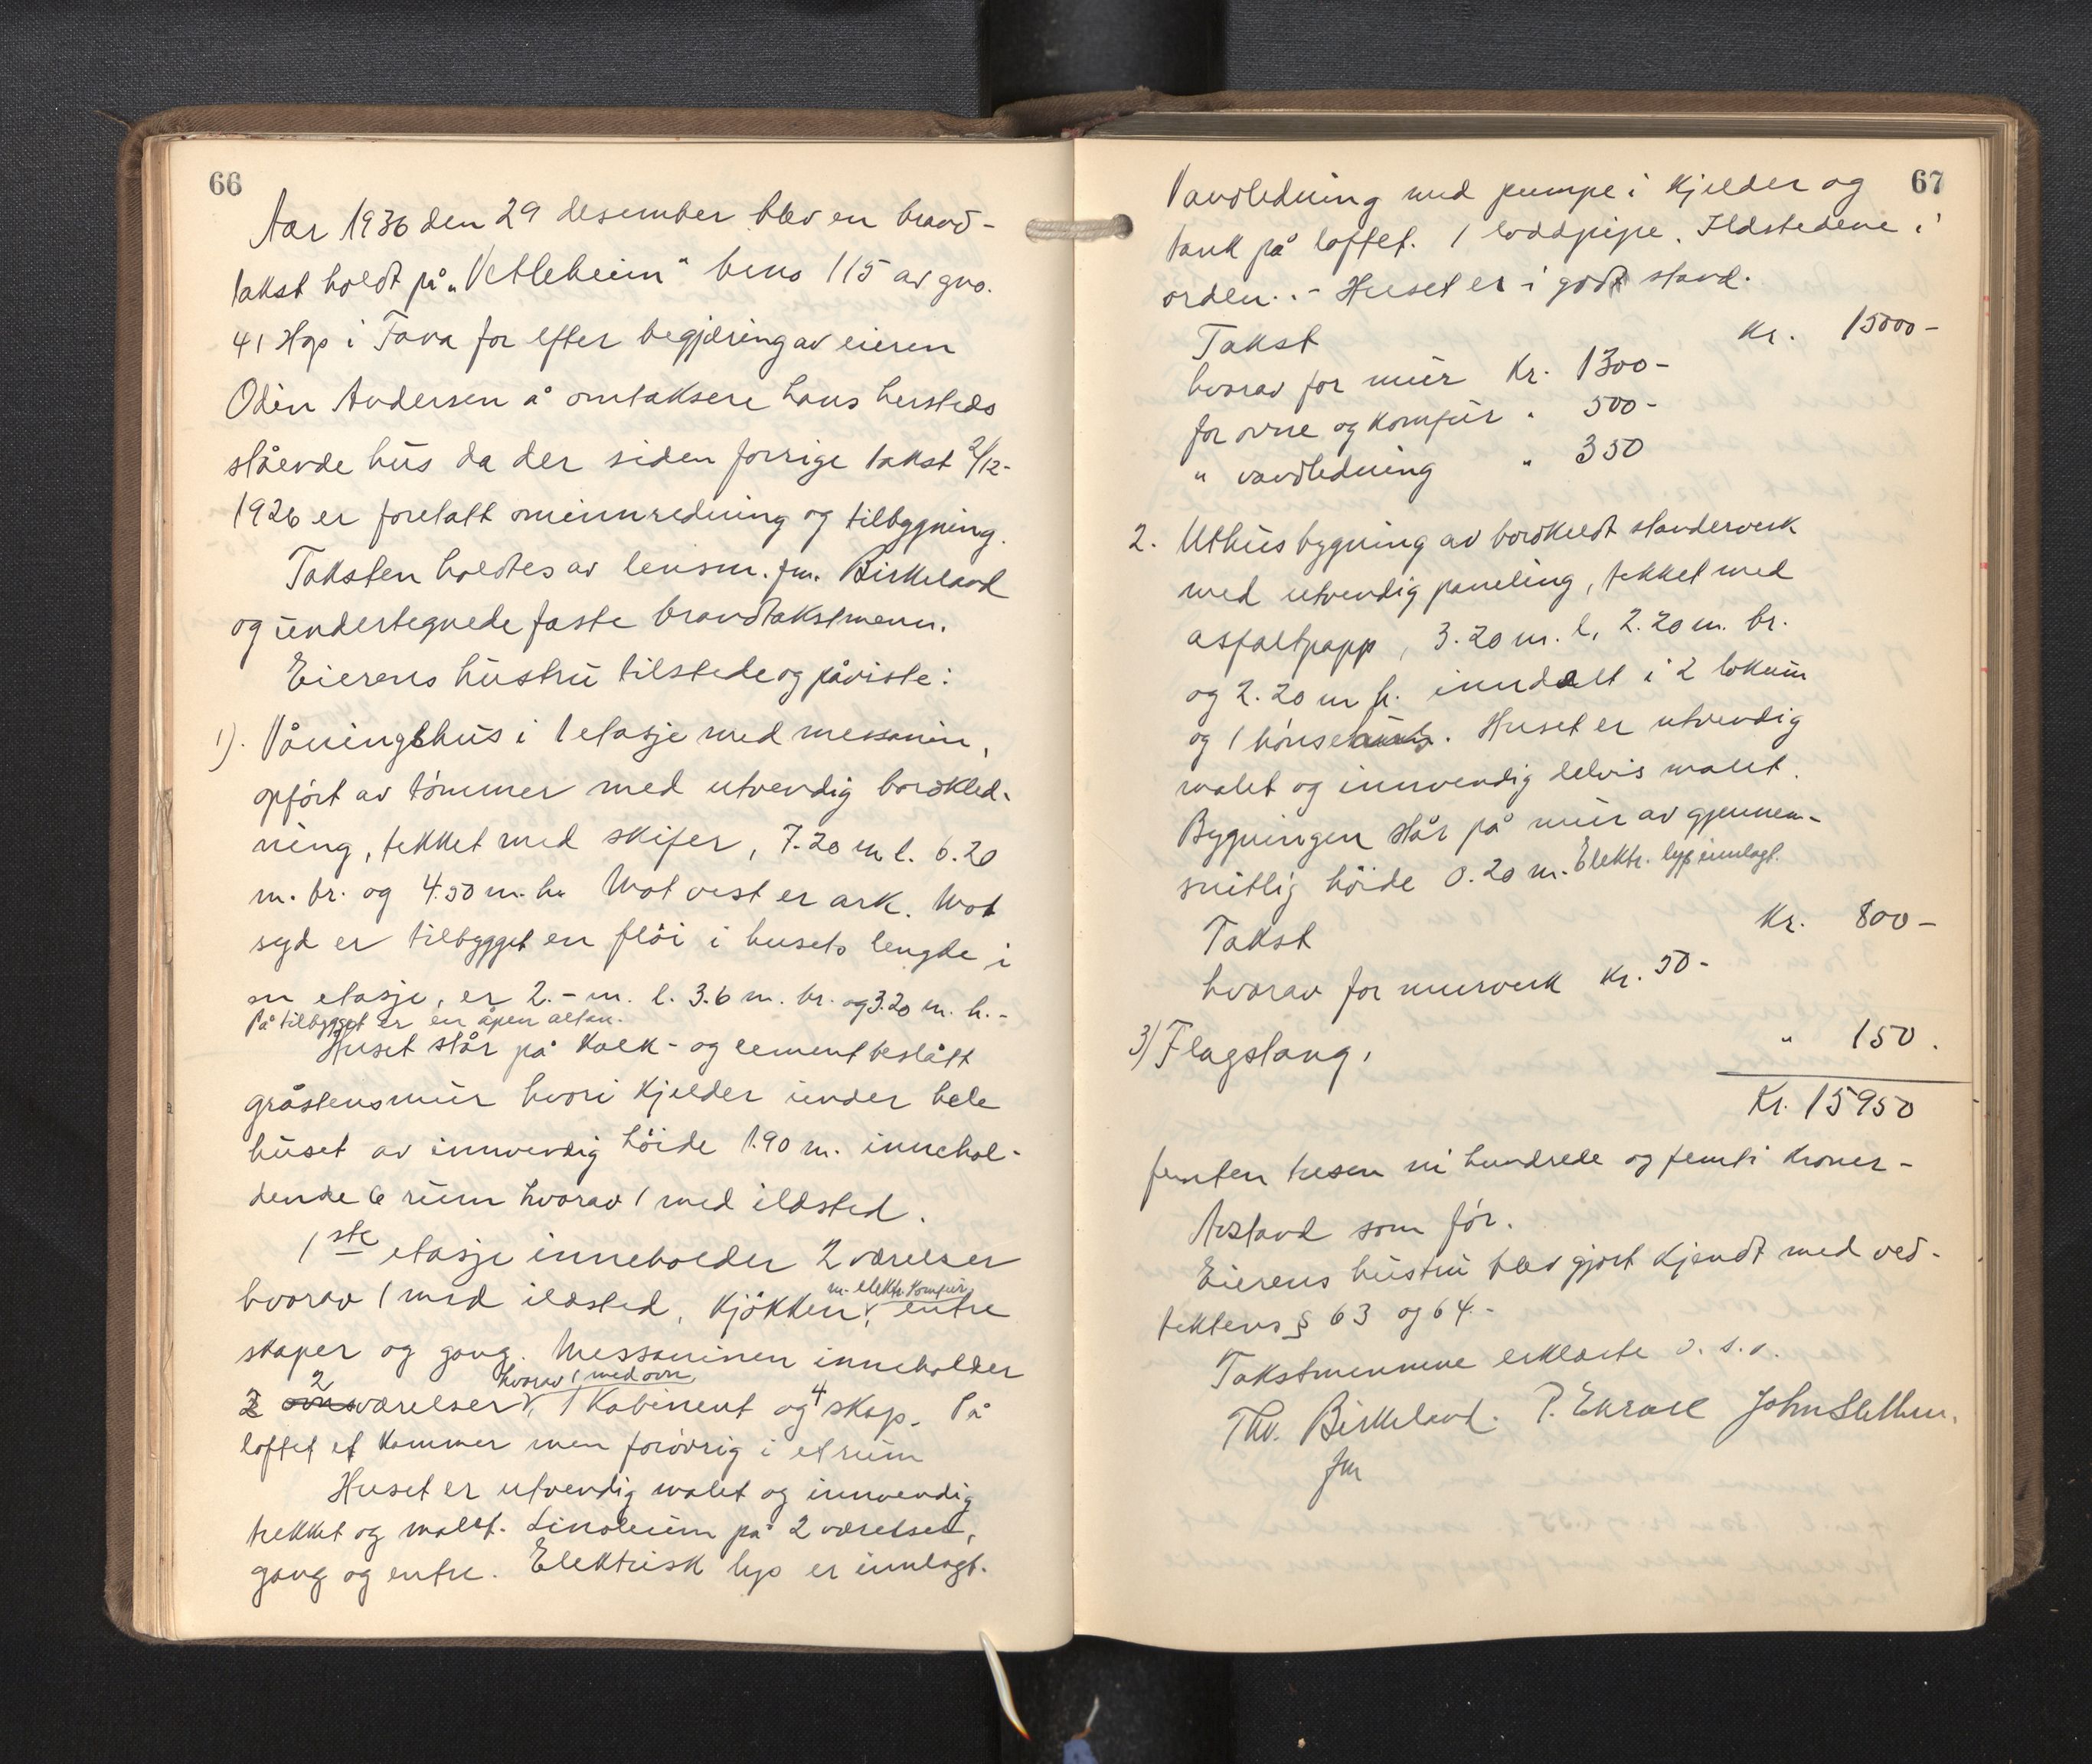 66
Aar 1936 den 29 desember blev en brand-
takst holdt på „Vetleheim" bno 115 av gno.
41 Hop i Fana for efter begjæring av eieren
Odin Andersen å omtaksere hans hersteds
stående hus da der siden forrige takst 2/12-
1926 er foretatt ominnredning og tilbygning.
Taksten holdtes av lensm. fm. Birkeland
og undertegnede faste brandtakstmenn.
Eierens hustru tilstede og påviste:
1). Våningshus i 1 etasje med messanin,
opført av tømmer med utvendig bordkled-
ning, tekket med skifer, 7.20 m l. 6.20
m. br. og 4.50 m. h. Mot vest er ark. Mot
syd er tilbygget en fløi i husets lengde i
en etasje, er 2.- m. l. 3.6 m. br. og 3.20 m. h.-
På tilbygget er en åpen altan.
Huset står på kalk- og cementbeslått
gråstensmur hvori kjelder under hele
huset av innvendig høide 1.90 m. innehol-
dende 6 rum hvorav 1 med ildsted.
1ste etasje inneholder 2 værelser
hvorav 1 med ildsted, kjøkken m. elektr. komfur, entre
skaper og gang. Messaninen inneholder
2 værelser hvorav 1 med ovn, 1 Kabinent og 4 skap. På
loftet et kammer men forøvrig i et rum
Huset er utvendig malet og innvendig
trekket og malet. Linoleum på 2 værelser,
gang og entre. Elektrisk lys er innlagt.
67
Vandledning med pumpe i kjelder og
tank på loftet. 1 loddpipe. Ildstedene i
orden.- Huset er i godt stand.
Takst Kr. 15000-
hvorav for mur Kr. 1300-
for ovne og komfur " 500-
" vandledning " 350
2. Uthusbygning av bordkledt standerverk
med utvendig paneling, tekket med
asfaltpapp, 3.20 m. l, 2.20 m. br.
og 2.20 m h. inndelt i 2 lokum
og 1 hønsehus. Huset er utvendig
malet og innvendig delvis malet.
Bygningen står på mur av gjennem-
snitlig høide 0.20 m. Elektr. lys innlagt.
Takst Kr. 800-
hvorav for murverk Kr. 50-
3) Flagstang, " 150.
Kr. 15950
femten tusen ni hundrede og femti kroner-
Avstand som før.
Eierens hustru blev gjort kjendt med ved-
tektens § 63 og 64.-
Takstmennene erklærte o. s. v.
Thv. Birkeland. P. Ekrall John Slethen.
fm